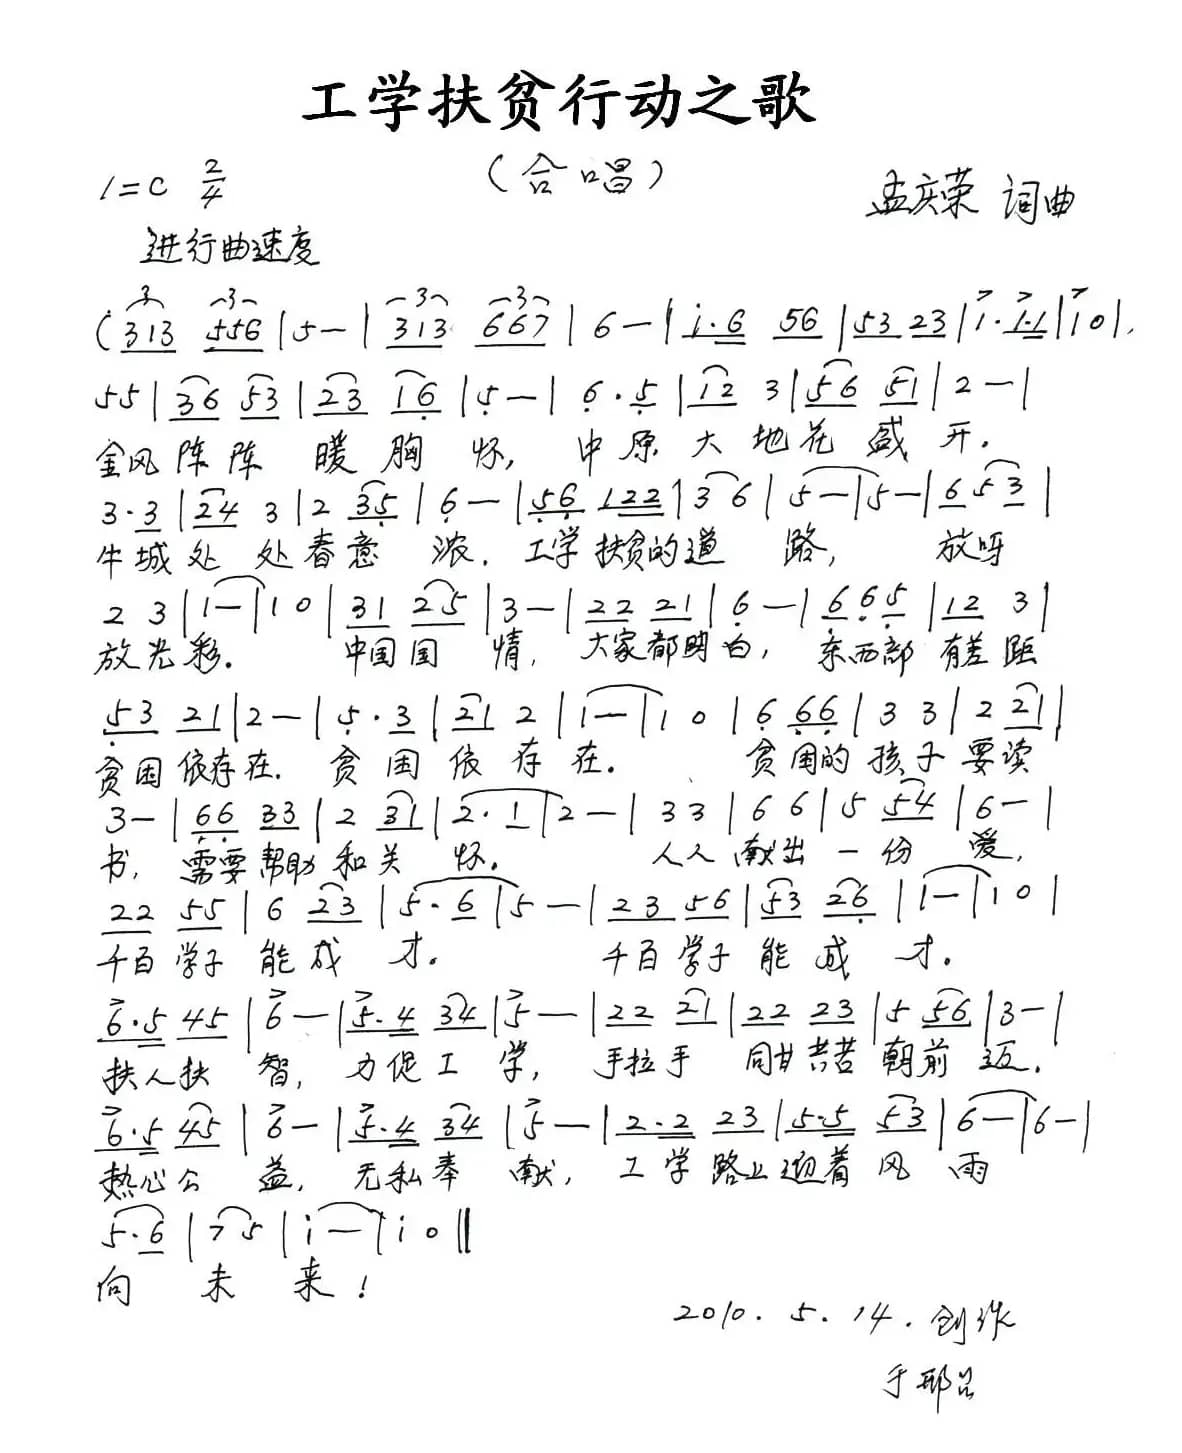 工学扶贫行动之歌
(合唱)
1=C 2/4
孟庆荣 词曲
进行曲速度
3 3 3 3
(313 556|5—|313 667|6—|i·6 56|53 23|1·1·1|10|,
55|36 53|23 16|5—|6·5|12 3|56 51|2—|
金风阵阵 暖胸怀, 中原大地花盛开.
3·3|24 3|2 35|6—|56 122|3 6|5—|5—|6 53|
牛城处处春意浓. 工学扶贫的道路, 放呀
2 3|1—|10|31 25|3—|22 21|6—|665|12 3|
放光彩. 中国国情, 大家都明白, 东西部有差距
53 21|2—|5·3|21 2|1—|10|6 66|3 3|2 21|
贫困依存在. 贫困依存在. 贫困的孩子要读
3—|66 33|2 31|2·1|2—|33|66|5 54|6—|
书, 需要帮助和关怀. 人人献出一份爱,
22 55|6 23|5·6|5—|23 56|53 26|1—|10|
千百学子能成才. 千百学子能成才.
6·5 45|6—|5·4 34|5—|22 21|22 23|5 56|3—|
扶人扶智, 力促工学, 手拉手 同甘共苦朝前迈.
6·5 45|6—|5·4 34|5—|2·2 23|5·5 53|6—|6—|
热心公益, 无私奉献, 工学路上迎着风雨
5·6|75|i—|i0‖
向未来!
2010.5.14.创作
于邢台